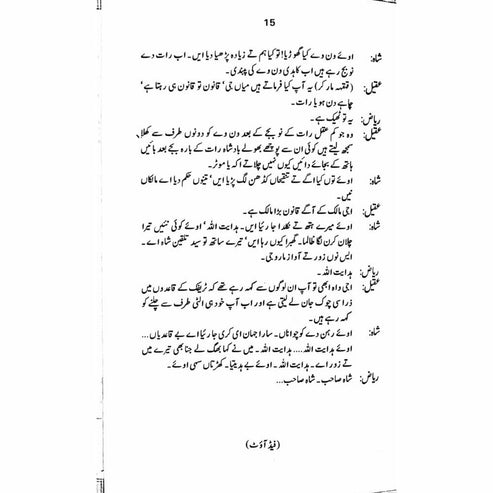 15
شاہ: اوئے ون وے کیا گھوڑیا! تو کیا ہم تے زیادہ پڑھیا دیا ایں۔ اب رات دے
نو بج رہے ہیں اب کاہدی ون وے کی پابندی۔
عقیل: (قہقہہ مار کر) یہ آپ کیا فرماتے ہیں میاں جی' قانون تو قانون ہی رہتا ہے'
چاہے دن ہو یا رات۔
ریاض: یہ تو ٹھیک ہے۔
عقیل: وہ جو کم عقل رات کے نو بجے کے بعد ون وے کو دونوں طرف سے کھلا
سمجھ لیتے ہیں کوئی ان سے پوچھے بھولے بادشاہ رات کے بارہ بجے بعد بائیں
ہاتھ کے بجائے دائیں کیوں نہیں چلاتے اکہ یا موٹر۔
شاہ: اوئے توں کیا اگے تے نلقیاں کڈھن لگ پڑیا ایں' تینوں حکم دیا اے مالکاں
نیں۔
عقیل: اجی مالک کے آگے قانون بڑا مالک ہے۔
شاہ: اوئے میرے ہتھ تے نکلدا جا رہیا ایں۔ ہدایت اللہ' اوئے کوئی نئیں تیرا
چلان کرن لگا ظالما۔ گھبرا کیوں رہا ایں' تیرے ساتھ تو سید تلقین شاہ اے۔
ایس نوں زور تے آواز مارو جی۔
ریاض: ہدایت اللہ۔
عقیل: اجی واہ ابھی تو آپ ان لوگوں سے کہہ رہے تھے کہ ٹریفک کے قاعدوں میں
ذرا سی چوک جان لے لیتی ہے اور اب آپ خود ہی الٹی طرف سے چلنے کو
کہہ رہے ہیں۔
شاہ: اوئے رہن دے کو چواناں۔ سارا جہان ای کری جا رہیا اے بے قاعدیاں....
اوئے ہدایت اللہ.... ہدایت اللہ۔ میں نے کہا بھگ لے جتنا بھی تیرے میں
تے زور اے۔ ہدایت اللہ۔ اوئے بے ہدیتیا۔ کھڑ تاں سہی اوئے۔
ریاض: شاہ صاحب۔ شاہ صاحب...
(فیڈ آؤٹ)